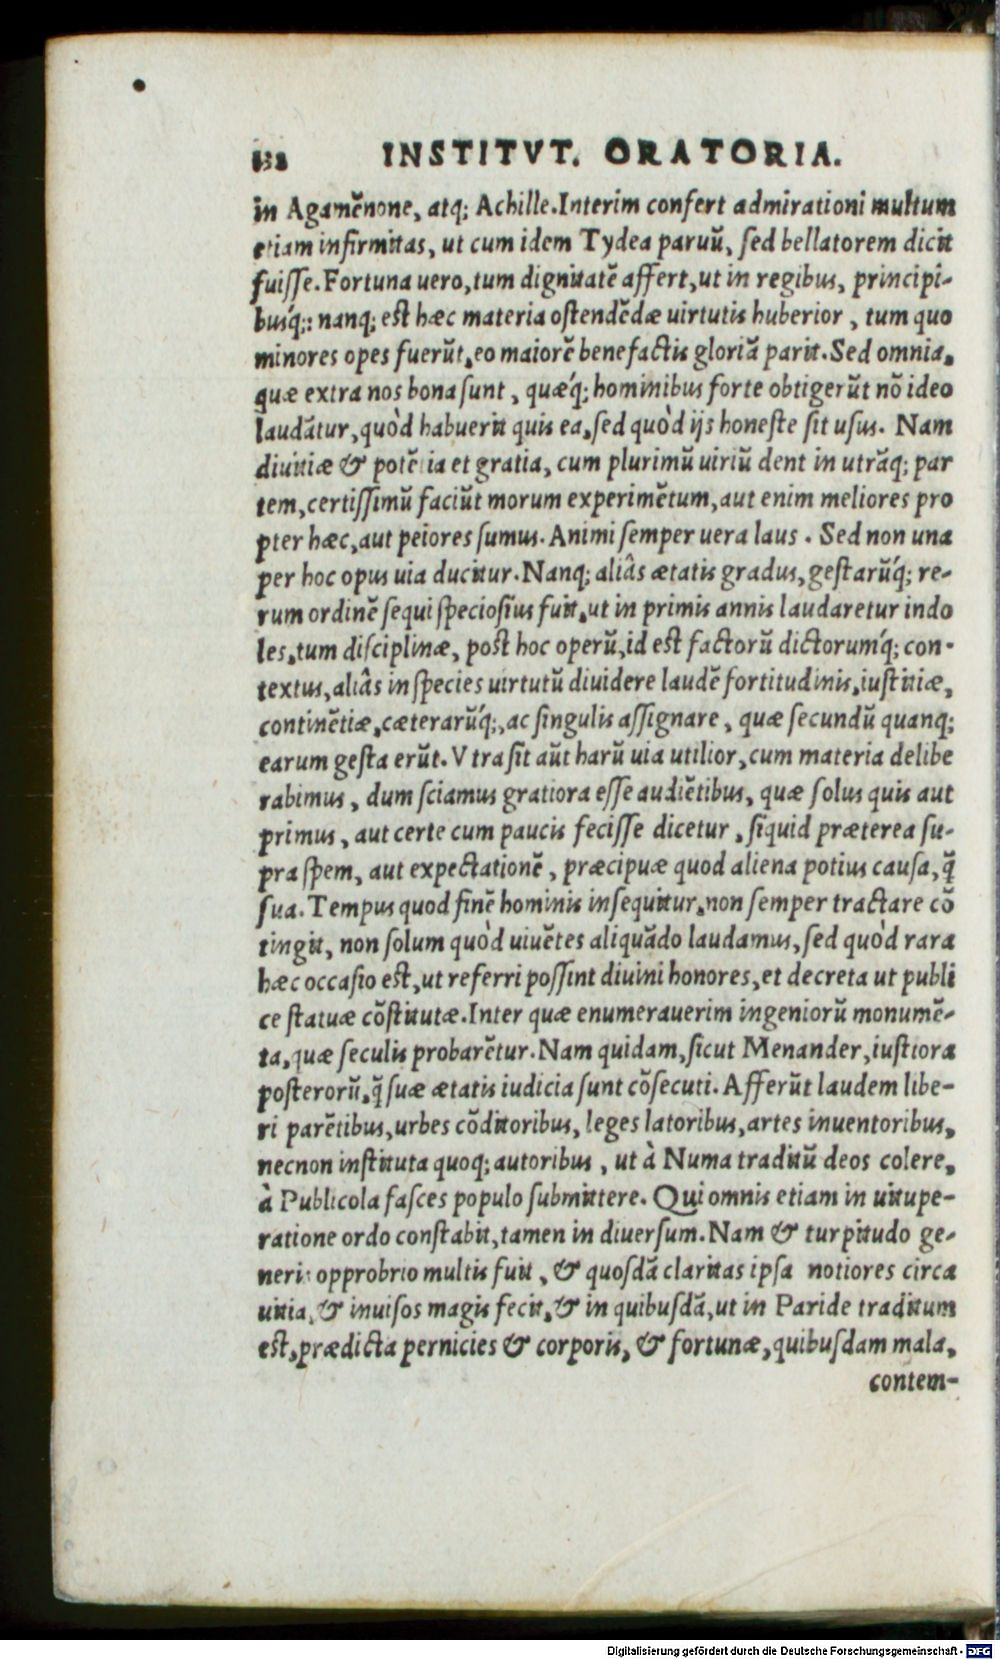 132 INSTITVT. ORATORIA.
in Agamẽnone, atq; Achille. Interim confert admirationi multum
etiam infirmitas, ut cum idem Tydea paruũ, ſed bellatorem dicit
fuiſſe. Fortuna uero, tum dignitatẽ affert, ut in regibus, principi-
busq́;: nanq; eſt hæc materia oſtendẽdæ uirtutis huberior, tum quo
minores opes fuerũt, eo maiorẽ benefactis gloriã parit. Sed omnia,
quæ extra nos bona ſunt, quæq́; hominibus forte obtigerũt nõ ideo
laudãtur, quòd habuerit quis ea, ſed quòd ijs honeſte ſit uſus. Nam
diuitiæ & potẽtia et gratia, cum plurimũ uiriũ dent in utrãq; par
tem, certiſſimũ faciũt morum experimẽtum, aut enim meliores pro
pter hæc, aut peiores ſumus. Animi ſemper uera laus. Sed non una
per hoc opus uia ducitur. Nanq; aliâs ætatis gradus, geſtarũq́; re-
rum ordinẽ ſequi ſpecioſius fuit, ut in primis annis laudaretur indo
les, tum diſciplinæ, poſt hoc operũ, id eſt factorũ dictorumq́; con-
textus, aliâs in ſpecies uirtutũ diuidere laudẽ fortitudinis, iuſtitiæ,
continẽtiæ, cæterarũq́;, ac ſingulis aſſignare, quæ ſecundũ quanq;
earum geſta erũt. Vtra ſit aũt harũ uia utilior, cum materia delibe
rabimus, dum ſciamus gratiora eſſe audiẽtibus, quæ ſolus quis aut
primus, aut certe cum paucis feciſſe dicetur, ſiquid præterea ſu-
pra ſpem, aut expectationẽ, præcipuæ quod aliena potius cauſa, q̃
ſua. Tempus quod finẽ hominis inſequitur, non ſemper tractare cõ
tingit, non ſolum quòd uiuẽtes aliquãdo laudamus, ſed quòd rara
hæc occaſio eſt, ut referri poſſint diuini honores, et decreta ut publi
ce ſtatuæ cõſtitutæ. Inter quæ enumerauerim ingeniorũ monumẽ-
ta, quæ ſeculis probarẽtur. Nam quidam, ſicut Menander, iuſtiora
poſterorũ, q̃ ſuæ ætatis iudicia ſunt cõſecuti. Afferũt laudem libe-
ri parẽtibus, urbes cõditoribus, leges latoribus, artes inuentoribus,
necnon inſtituta quoq; autoribus, ut à Numa traditũ deos colere,
à Publicola faſces populo ſubmittere. Qui omnis etiam in uitupe-
ratione ordo conſtabit, tamen in diuerſum. Nam & turpitudo ge-
neris opprobrio multis fuit, & quoſdã claritas ipſa notiores circa
uitia, & inuiſos magis fecit, & in quibuſdã, ut in Paride traditum
eſt, prædicta pernicies & corporis, & fortunæ, quibuſdam mala,
contem-
Digitalisierung gefördert durch die Deutsche Forschungsgemeinschaft - DFG